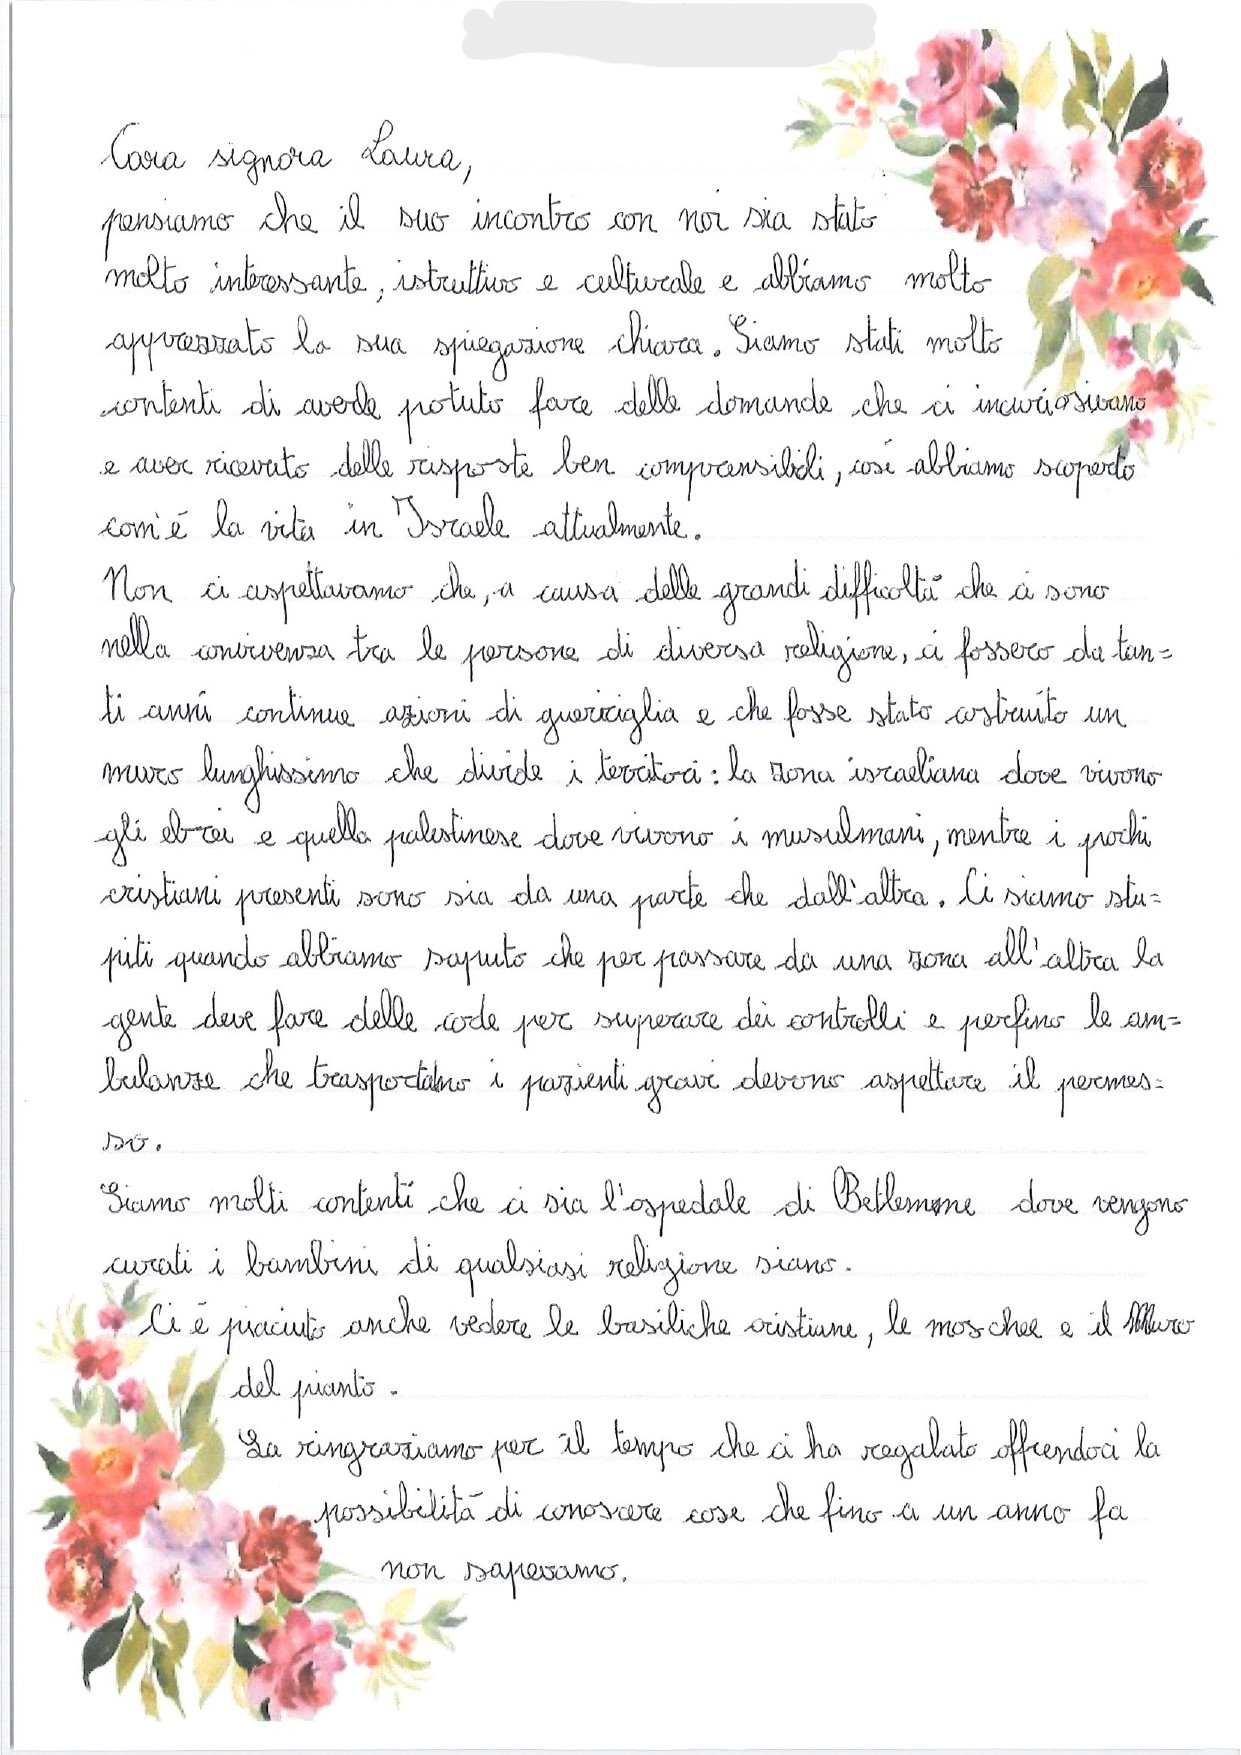 Cara signora Laura,
pensiamo che il suo incontro con noi sia stato
molto interessante, istruttivo e culturale e abbiamo molto
apprezzato la sua spiegazione chiara. Siamo stati molto
contenti di averle potuto fare delle domande che ci incuriosivano
e aver ricevuto delle risposte ben comprensibili, così abbiamo scoperto
com'é la vita in Israele attualmente.
Non ci aspettavamo che, a causa delle grandi difficoltá che ci sono
nella convivenza tra le persone di diversa religione, ci fossero da tan=
ti anni continue azioni di guerriglia e che fosse stato costruito un
muro lunghissimo che divide i territori: la zona israeliana dove vivono
gli ebrei e quella palestinese dove vivono i musulmani, mentre i pochi
cristiani presenti sono sia da una parte che dall'altra. Ci siamo stu=
piti quando abbiamo saputo che per passare da una zona all'altra la
gente deve fare delle code per superare dei controlli e perfino le am=
bulanze che trasportano i pazienti gravi devono aspettare il permes=
so.
Siamo molti contenti che ci sia l'ospedale di Betlemme dove vengono
curati i bambini di qualsiasi religione siano.
Ci é piaciuto anche vedere le basiliche cristiane, le moschee e il Muro
del pianto.
La ringraziamo per il tempo che ci ha regalato offrendoci la
possibilitá di conoscere cose che fino a un anno fa
non sapevamo.